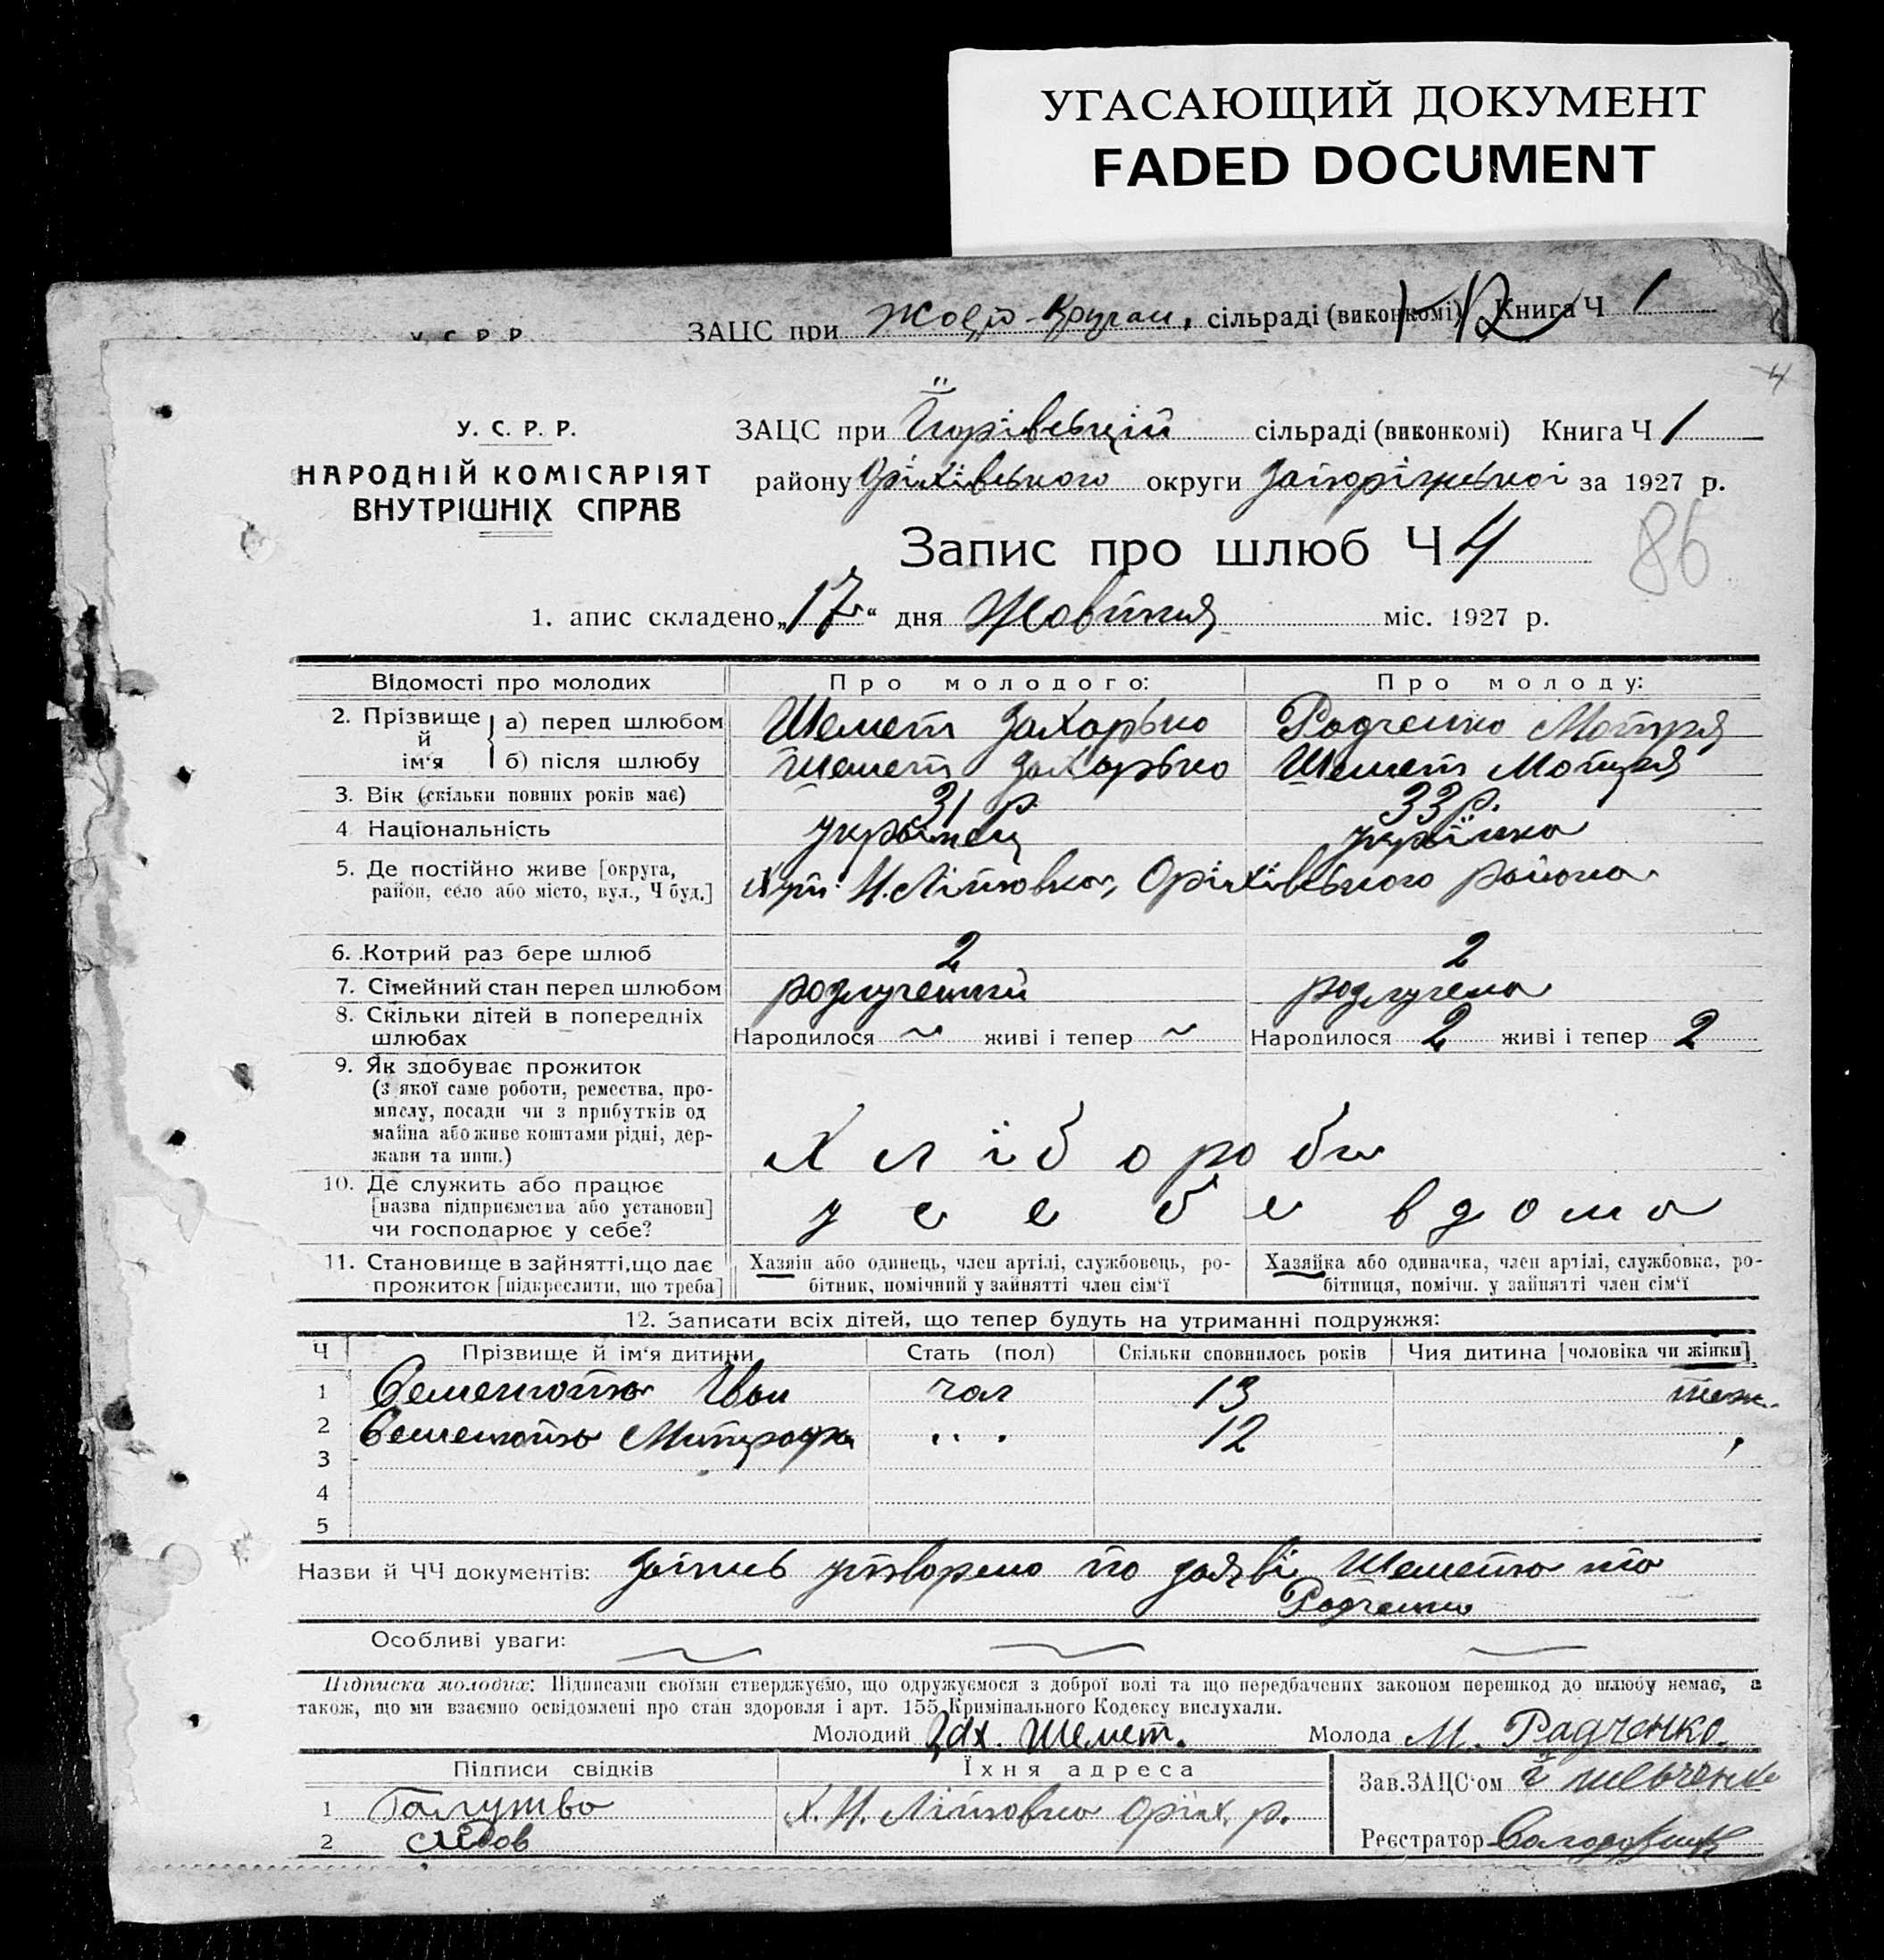 УГАСАЮЩИЙ ДОКУМЕНТ
FADED DOCUMENT
У.С.Р.Р. ЗАЦС при Жовто-Кручан, сільраді (виконкомі) Книга Ч 1
12
4
У. С. Р. Р.
НАРОДНІЙ КОМІСАРІЯТ
ВНУТРІШНІХ СПРАВ
ЗАЦС при сільраді (виконкомі) Книга Ч 1
району Оріхівського округи Запоріжської за 1927 р.
Запис про шлюб Ч 4
86
1. апис складено „17“ дня Жовтня міс. 1927 р.
Відомості про молодих Про молодого: Про молоду:
2. Прізвище й ім‘я а) перед шлюбом Шемет Захарько Радченко Мотря
б) після шлюбу Шемет Захарько Шемет Мотря
3. Вік (скільки повних років має) 31 р. 33 р.
4. Національність українец українка
5. Де постійно живе [округа,
район, село або місто, вул., Ч буд.] Хут. Н. Літовка, Оріхівського района
6. Котрий раз бере шлюб 2 2
7. Сімейний стан перед шлюбом розлучений розлучена
8. Скільки дітей в попередніх
шлюбах Народилося ~ живі і тепер ~ Народилося 2 живі і тепер 2
9. Як здобуває прожиток
(з якої саме роботи, ремества, про-
мислу, посади чи з прибутків од
майна або живе коштами рідні, дер-
жави та инш.) Хлібороби
10. Де служить або працює
[назва підприємства або установи]
чи господарює у себе? у себе вдома
11. Становище в зайнятті, що дає
прожиток [підкреслити, що треба]
Хазяін або одинець, член артілі, службовець, ро-
бітник, помічний у зайнятті член сім‘ї
Хазяйка або одиначка, член артілі, службовка, ро-
бітниця, помічн. у зайнятті член сім‘ї
12. Записати всіх дітей, що тепер будуть на утриманні подружжя:
Ч Прізвище й ім‘я дитини Стать (пол) Скільки сповнилось років Чия дитина [чоловіка чи жінки]
1 Іван чол 13
2 Митрофан " 12
3
4
5
Назви й ЧЧ документів: Запись утворено по заяві Шемета та
Радченко
Особливі уваги:
Підписка молодих: Підписами своїми стверджуємо, що одружуємося з доброї волі та що передбачених законом перешкод до шлюбу немає, а
також, що ми взаємно освідомлені про стан здоровля і арт. 155 Кримінального Кодексу вислухали.
Молодий Зах. Шемет. Молода М. Радченко.
Підписи свідків Їхня адреса
Зав. ЗАЦС‘ом Шевченко
1 Х. Н. Літовка Оріх. р.
2
Реєстратор